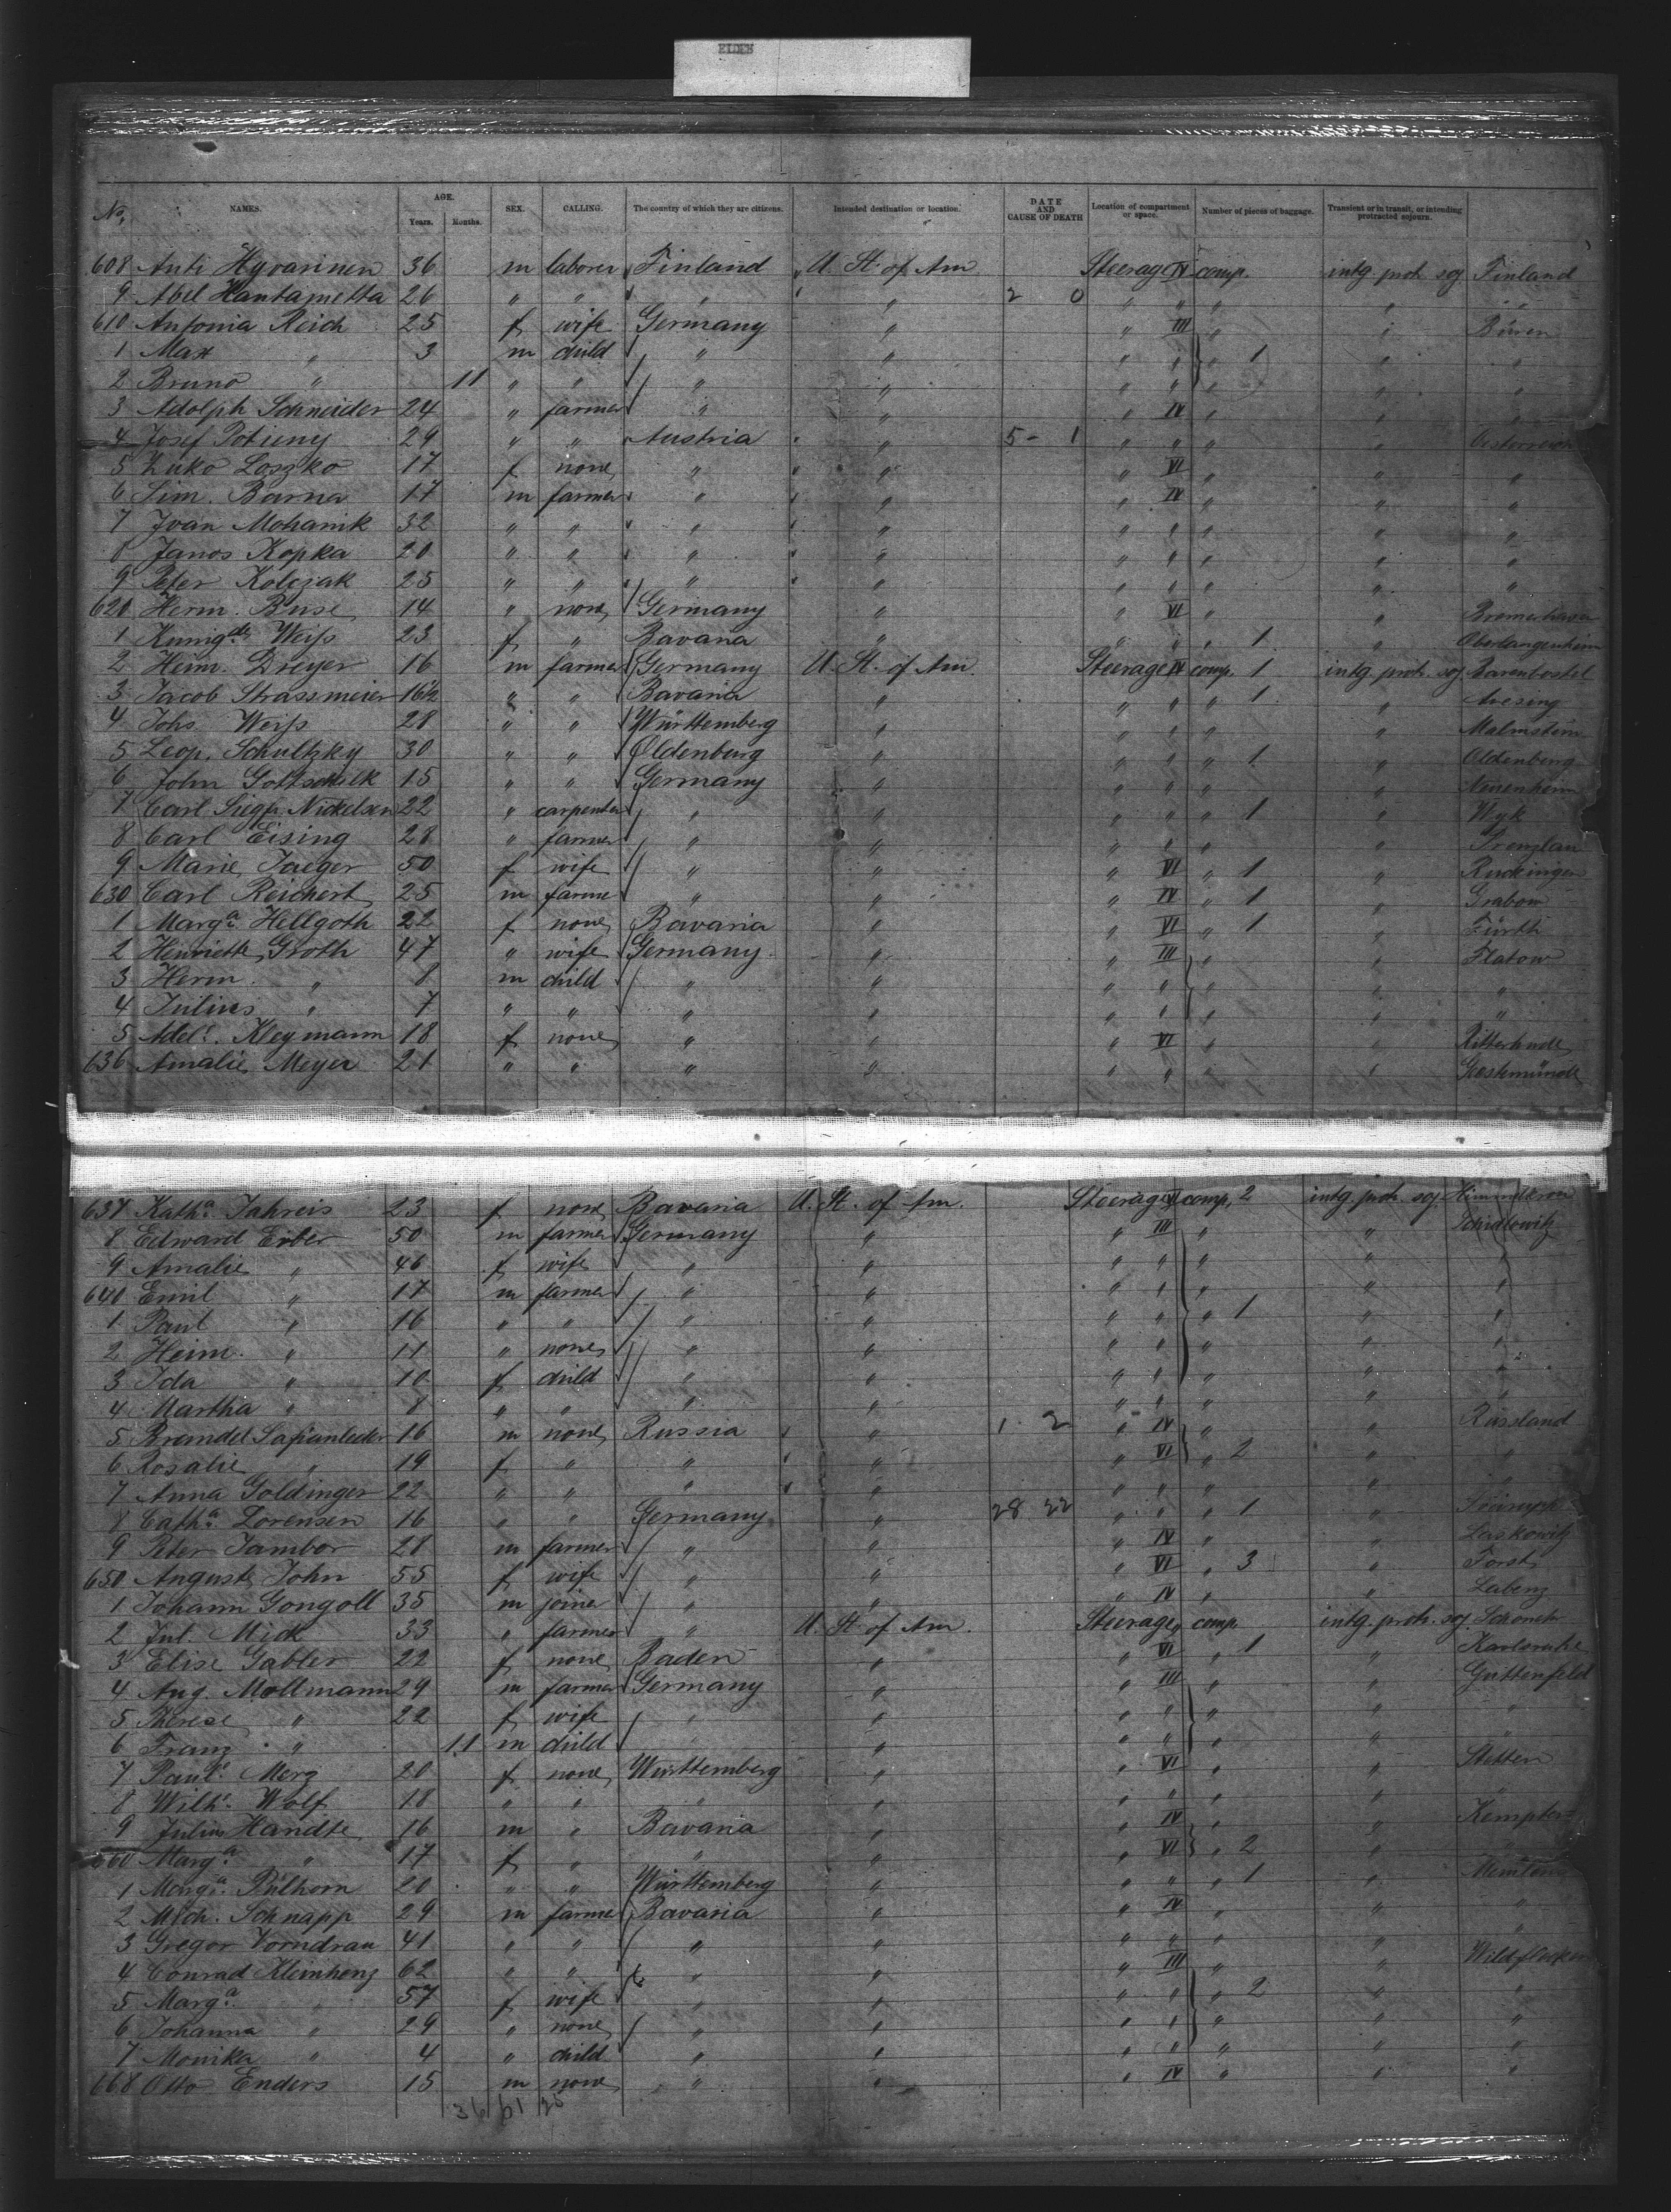 ELDEN
No. NAMES. AGE. Years. Months. SEX. CALLING. The country of which they are citizens. Intended destination or location. DATE AND CAUSE OF DEATH Location of compartment or space. Number of pieces of baggage. Transient or in transit, or intending protracted sojourn.
608 Anti Hyvarinen 36 m laborer Finland U. St. of Am. Steerage IV comp. intg. protr. soj. Finland
9 Abel Hantametta 26 " " " " 2 0 " " " " "
610 Antonia Reich 25 f wife Germany " " III " " Büren
1 Max " 3 m child " " " " " 1 " "
2 Bruno " 11 " " " " " " " " "
3 Adolph Schneider 24 " farmer " " " IV " " "
4 Josef Potieny 29 " " Austria " 5 - 1 " " " " Oesterreich
5 Zuko Loszko 17 f none " " " VI " " "
6 Sim. Barna 17 m farmer " " " IV " " "
7 Ivan Mohanik 32 " " " " " " " " "
8 Janos Kopka 20 " " " " " " " " "
9 Peter Kolczak 25 " " " " " " " " "
620 Herm. Buse 14 " none Germany " " VI " " Bremerhaven
1 Kunigde Weiss 23 f " Bavaria " " " " 1 " Oberlangenheim
2 Heinr. Dreyer 16 m farmer Germany U. St. of Am. Steerage IV comp. 1 intg. protr. soj. Barenbostel
3 Jacob Strassmeier 16½ " " Bavaria " " " " 1 " Aresing
4 Johs. Weiss 28 " " Württemberg " " " " " Malmsheim
5 Leop. Schultzky 30 " " Oldenburg " " " " 1 " Oldenberg
6 John Gottschalk 15 " " Germany " " " " " Neuenheim
7 Carl Siegfr. Nickelsen 22 " carpenter " " " " " 1 " Wyk
8 Carl Eising 28 " farmer " " " " " " Prenzlau
9 Marie Jaeger 50 f wife " " " VI " 1 " Ruckingen
630 Carl Reichert 25 m farmer " " " IV " 1 " Grabow
1 Marga. Hellgoth 22 f none Bavaria " " VI " 1 " Fürth
2 Henriette Groth 47 " wife Germany " " III " " Flatow
3 Herm. " 8 m child " " " " " " "
4 Julius " 7 " " " " " " " " "
5 Adele. Kleymann 18 f none " " " VI " " Ritterhude
636 Amalie Meyer 21 " " " " " " " " Geestemünde
637 Katha. Jahreis 23 f none Bavaria U. St. of Am. Steerage VI comp. 2 intg. protr. soj.
8 Edward Erber 50 m farmer Germany " " III " " Schidlowitz
9 Amalie " 46 f wife " " " " " " "
640 Emil " 17 m farmer " " " " " " "
1 Paul " 16 " " " " " " " 1 " "
2 Heinr. " 11 " none " " " " " " "
3 Ida " 10 f child " " " " " " "
4 Martha " 8 " " " " " " " " "
5 Brandel Safianleder 16 m none Russia " 1 2 " IV " " Russland
6 Rosalie " 19 f " " " " VI " 2 " "
7 Anna Goldinger 22 " " " " " " " " "
8 Catha. Lorensen 16 " " Germany " 28 22 " " " 1 "
9 Peter Jambor 28 m farmer " " " IV " " Laskowitz
650 Auguste John 55 f wife " " " VI " 3 " Forst
1 Johann Gongoll 35 m joiner " " " IV " " Labenz
2 Jul. Mick 33 " farmer " U. St. of Am. Steerage " comp. intg. protr. soj.
3 Elise Gabler 22 f none Baden " " VI " 1 " Karlsruhe
4 Aug. Mollmann 29 m farmer Germany " " III " " Guttenfeld
5 Therese " 22 f wife " " " " " " "
6 Franz " 11 m child " " " " " " "
7 Paule. Merz 20 f none Württemberg " " VI " " Stetten
8 Wilhe. Wolf 18 " " " " " " " " "
9 Julius Handte 16 m " Bavaria " " IV " " Kempten
660 Marga. " 17 f " " " " VI " 2 " "
1 Marga. Pülhorn 20 " " Württemberg " " " " 1 "
2 Mich. Schnapp 29 m farmer Bavaria " " IV " " "
3 Gregor Vorndrau 41 " " " " " " " " "
4 Conrad Kleinhenz 62 " " " " " III " " Wildflecken
5 Marga. " 57 f wife " " " " " 2 " "
6 Johanna " 29 " none " " " " " " "
7 Monika " 4 " child " " " " " " "
668 Otto Enders 15 m none " " " IV " " "
36 61 25